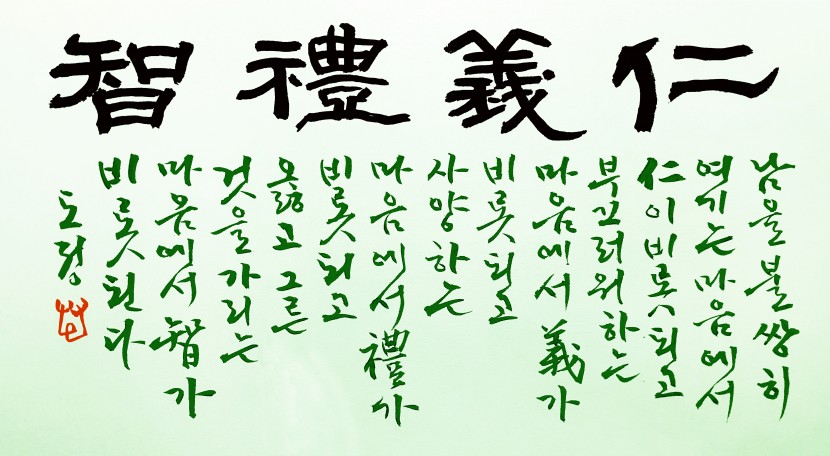 仁義禮智
남을불쌍히
여기는마음에서
仁이비롯되고
부끄러워하는
마음에서義가
비롯되고
사양하는
마음에서禮가
비롯되고
옳고그른
것을가리는
마음에서智가
비롯된다